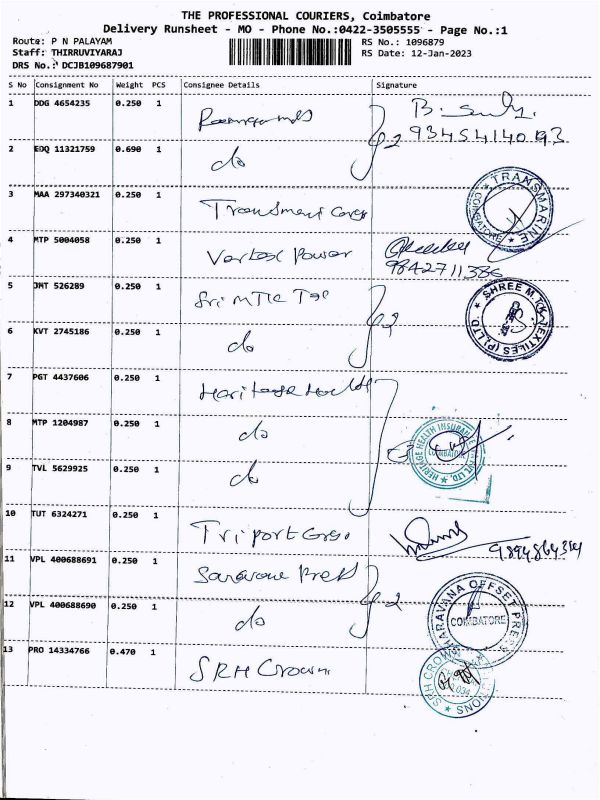 THE PROFESSIONAL COURIERS, Coimbatore
Delivery Runsheet - MO - Phone No.:0422-3505555 - Page No.:1
Route: P N PALAYAM
RS No.: 1096879
Staff: THIRRUVIYARAJ
RS Date: 12-Jan-2023
DRS No.: DCJB109687901
S No Consignment No Weight PCS Consignee Details Signature
1 DDG 4654235 0.250 1
93454140193
2 EDQ 11321759 0.690 1 do 2
3 MAA 297340321 0.250 1
TRANSMARINE
COIMBATORE
4 MTP 5004058 0.250 1 Vortex Power
9842711386
5 JMT 526289 0.250 1 Sri MTK Tex
SHREE M.T.K TEXTILES (P) LTD.
6 KVT 2745186 0.250 1 do 2
7 PGT 4437606 0.250 1 Heritage Health
8 MTP 1204987 0.250 1 do 3
HERITAGE HEALTH INSURANCE PVT. LTD.
COIMBATORE
9 TVL 5629925 0.250 1 do
10 TUT 6324271 0.250 1 Triport Cargo
11 VPL 400688691 0.250 1 Saravana Press
12 VPL 400688690 0.250 1 do 2
SHARAVANA OFFSET PRESS
COIMBATORE
13 PRO 14334766 0.470 1 SRH Crown
SRH CROWN